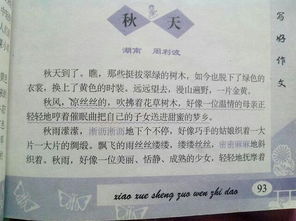 秋天
湖南 周利波
写好作文
秋天到了。瞧，那些挺拔翠绿的树木，如今也脱下了绿色的
衣裳，换上了黄色的时装。远远望去，漫山遍野，一片金黄。
秋风，凉丝丝的，吹拂着花草树木，好像一位温情的母亲正
轻轻地哼着催眠曲把自己的子女送进甜蜜的梦乡。
秋雨濛濛，淅沥淅沥地下个不停，好像巧手的姑娘织着一大
片一大片的绸缎。飘飞的雨丝丝缕缕，缕缕丝丝，密密麻麻地斜
织着。秋雨，好像一位美丽、恬静、成熟的少女，轻轻地抚摩着
xiao xue sheng zuo wen zhi dao
93